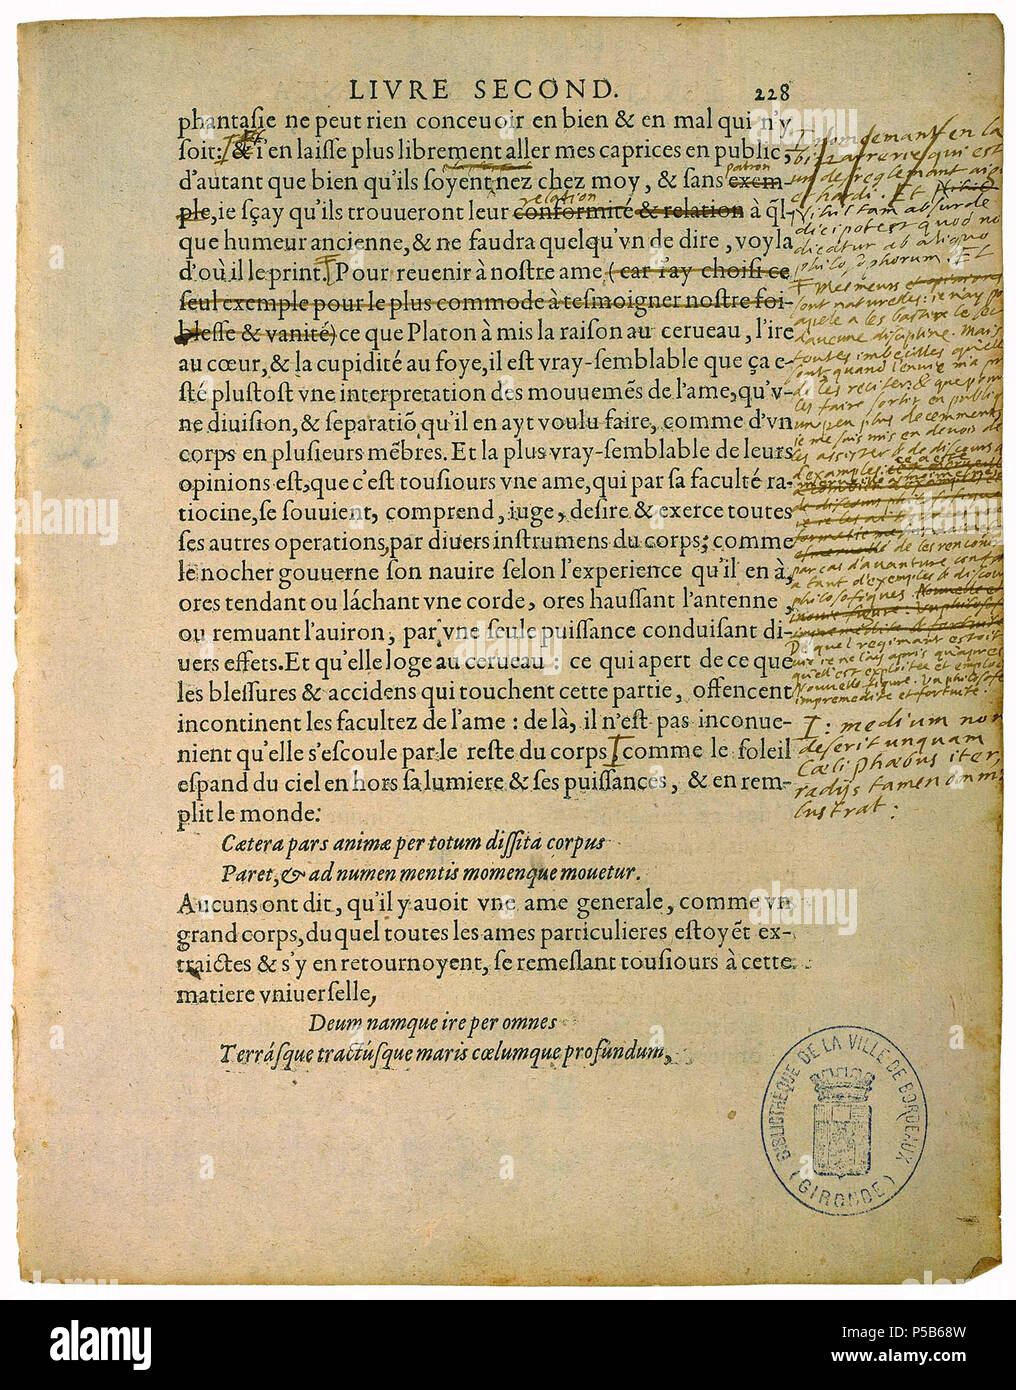 LIVRE SECOND. 228
phantaſie ne peut rien conceuoir en bien & en mal qui n'y
ſoit: & i'en laiſſe plus librement aller mes caprices en public,
d'autant que bien qu'ils ſoyent nez chez moy, & ſans exem-
patron
ple, ie ſçay qu'ils trouueront leur conformité & relation à q̃l-
relation
que humeur ancienne, & ne faudra quelqu'vn de dire, voyla
d'où il le print. Pour reuenir à noſtre ame (car i'ay choiſi ce
ſeul exemple pour le plus commode à teſmoigner noſtre foi-
bleſſe & vanité) ce que Platon à mis la raiſon au cerueau, l'ire
au cœur, & la cupidité au foye, il eſt vray-ſemblable que ça e-
ſté pluſtoſt vne interpretation des mouuemẽs de l'ame, qu'v-
ne diuiſion, & ſeparatiõ qu'il en ayt voulu faire, comme d'vn
corps en pluſieurs mẽbres. Et la plus vray-ſemblable de leurs
opinions eſt, que c'eſt touſiours vne ame, qui par ſa faculté ra-
tiocine, ſe ſouuient, comprend, iuge, deſire & exerce toutes
ſes autres operations, par diuers inſtrumens du corps; comme
le nocher gouuerne ſon nauire ſelon l'experience qu'il en à,
ores tendant ou láchant vne corde, ores hauſſant l'antenne,
ou remuant l'auiron, par vne ſeule puiſſance conduiſant di-
uers effets. Et qu'elle loge au cerueau: ce qui apert de ce que
les bleſſures & accidens qui touchent cette partie, offencent
incontinent les facultez de l'ame: de là, il n'eſt pas inconue-
nient qu'elle s'eſcoule par le reſte du corps comme le ſoleil
eſpand du ciel en hors ſa lumiere & ſes puiſſances, & en rem-
plit le monde:
Cætera pars animæ per totum diſſita corpus
Paret, & ad numen mentis momenque mouetur.
Aucuns ont dit, qu'il y auoit vne ame generale, comme vn
grand corps, du quel toutes les ames particulieres eſtoyẽt ex-
traictes & s'y en retournoyent, ſe remeſlant touſiours à cette
matiere vniuerſelle,
Deum namque ire per omnes
Terráſque tractúſque maris cœlumque profundum,
vitii tam absurde
dici potest quod no
dicatur ab aliquo
philosophorum. Et
Mes meurs
sont naturelles: ie n'ay po
apele a les bastir le
d'aucune discipline. Mais
toutes imbecilles qu'elle
sont quand l'envie m'a
de les reciter, & que pour
les faire sortir en publiq
un peu plus decemment
ie me suis mis en devoir de
les assister & de discours &
d'exemples:
de les rencon
par cas d'avanture
a tant d'exemples & discou
philosofiques.
De quel regimant estoit
vie ie ne l'ay apris qu'apres
qu'ell'est exploitee et emploi
Nouvelle figure: Un philosofe
impremedite et fortuite.
: medium non
deserit unquam
Cæli phœbus iter,
radijs tamen omni
lustrat:
BIBLIOTHÉQUE DE LA VILLE DE BORDEAUX
(GIRONDE)
alamy
Image ID: P5B68W
www.alamy.com